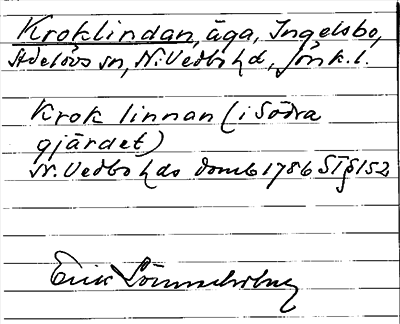 Kroklindan, äga, Ingelsbo,
Adelövs sn, N. Vedbo hd, Jönk. l.
Krok linnan (i Södra
gjärdet)
N. Vedbo hds domb 1786 ST § 152
Erik